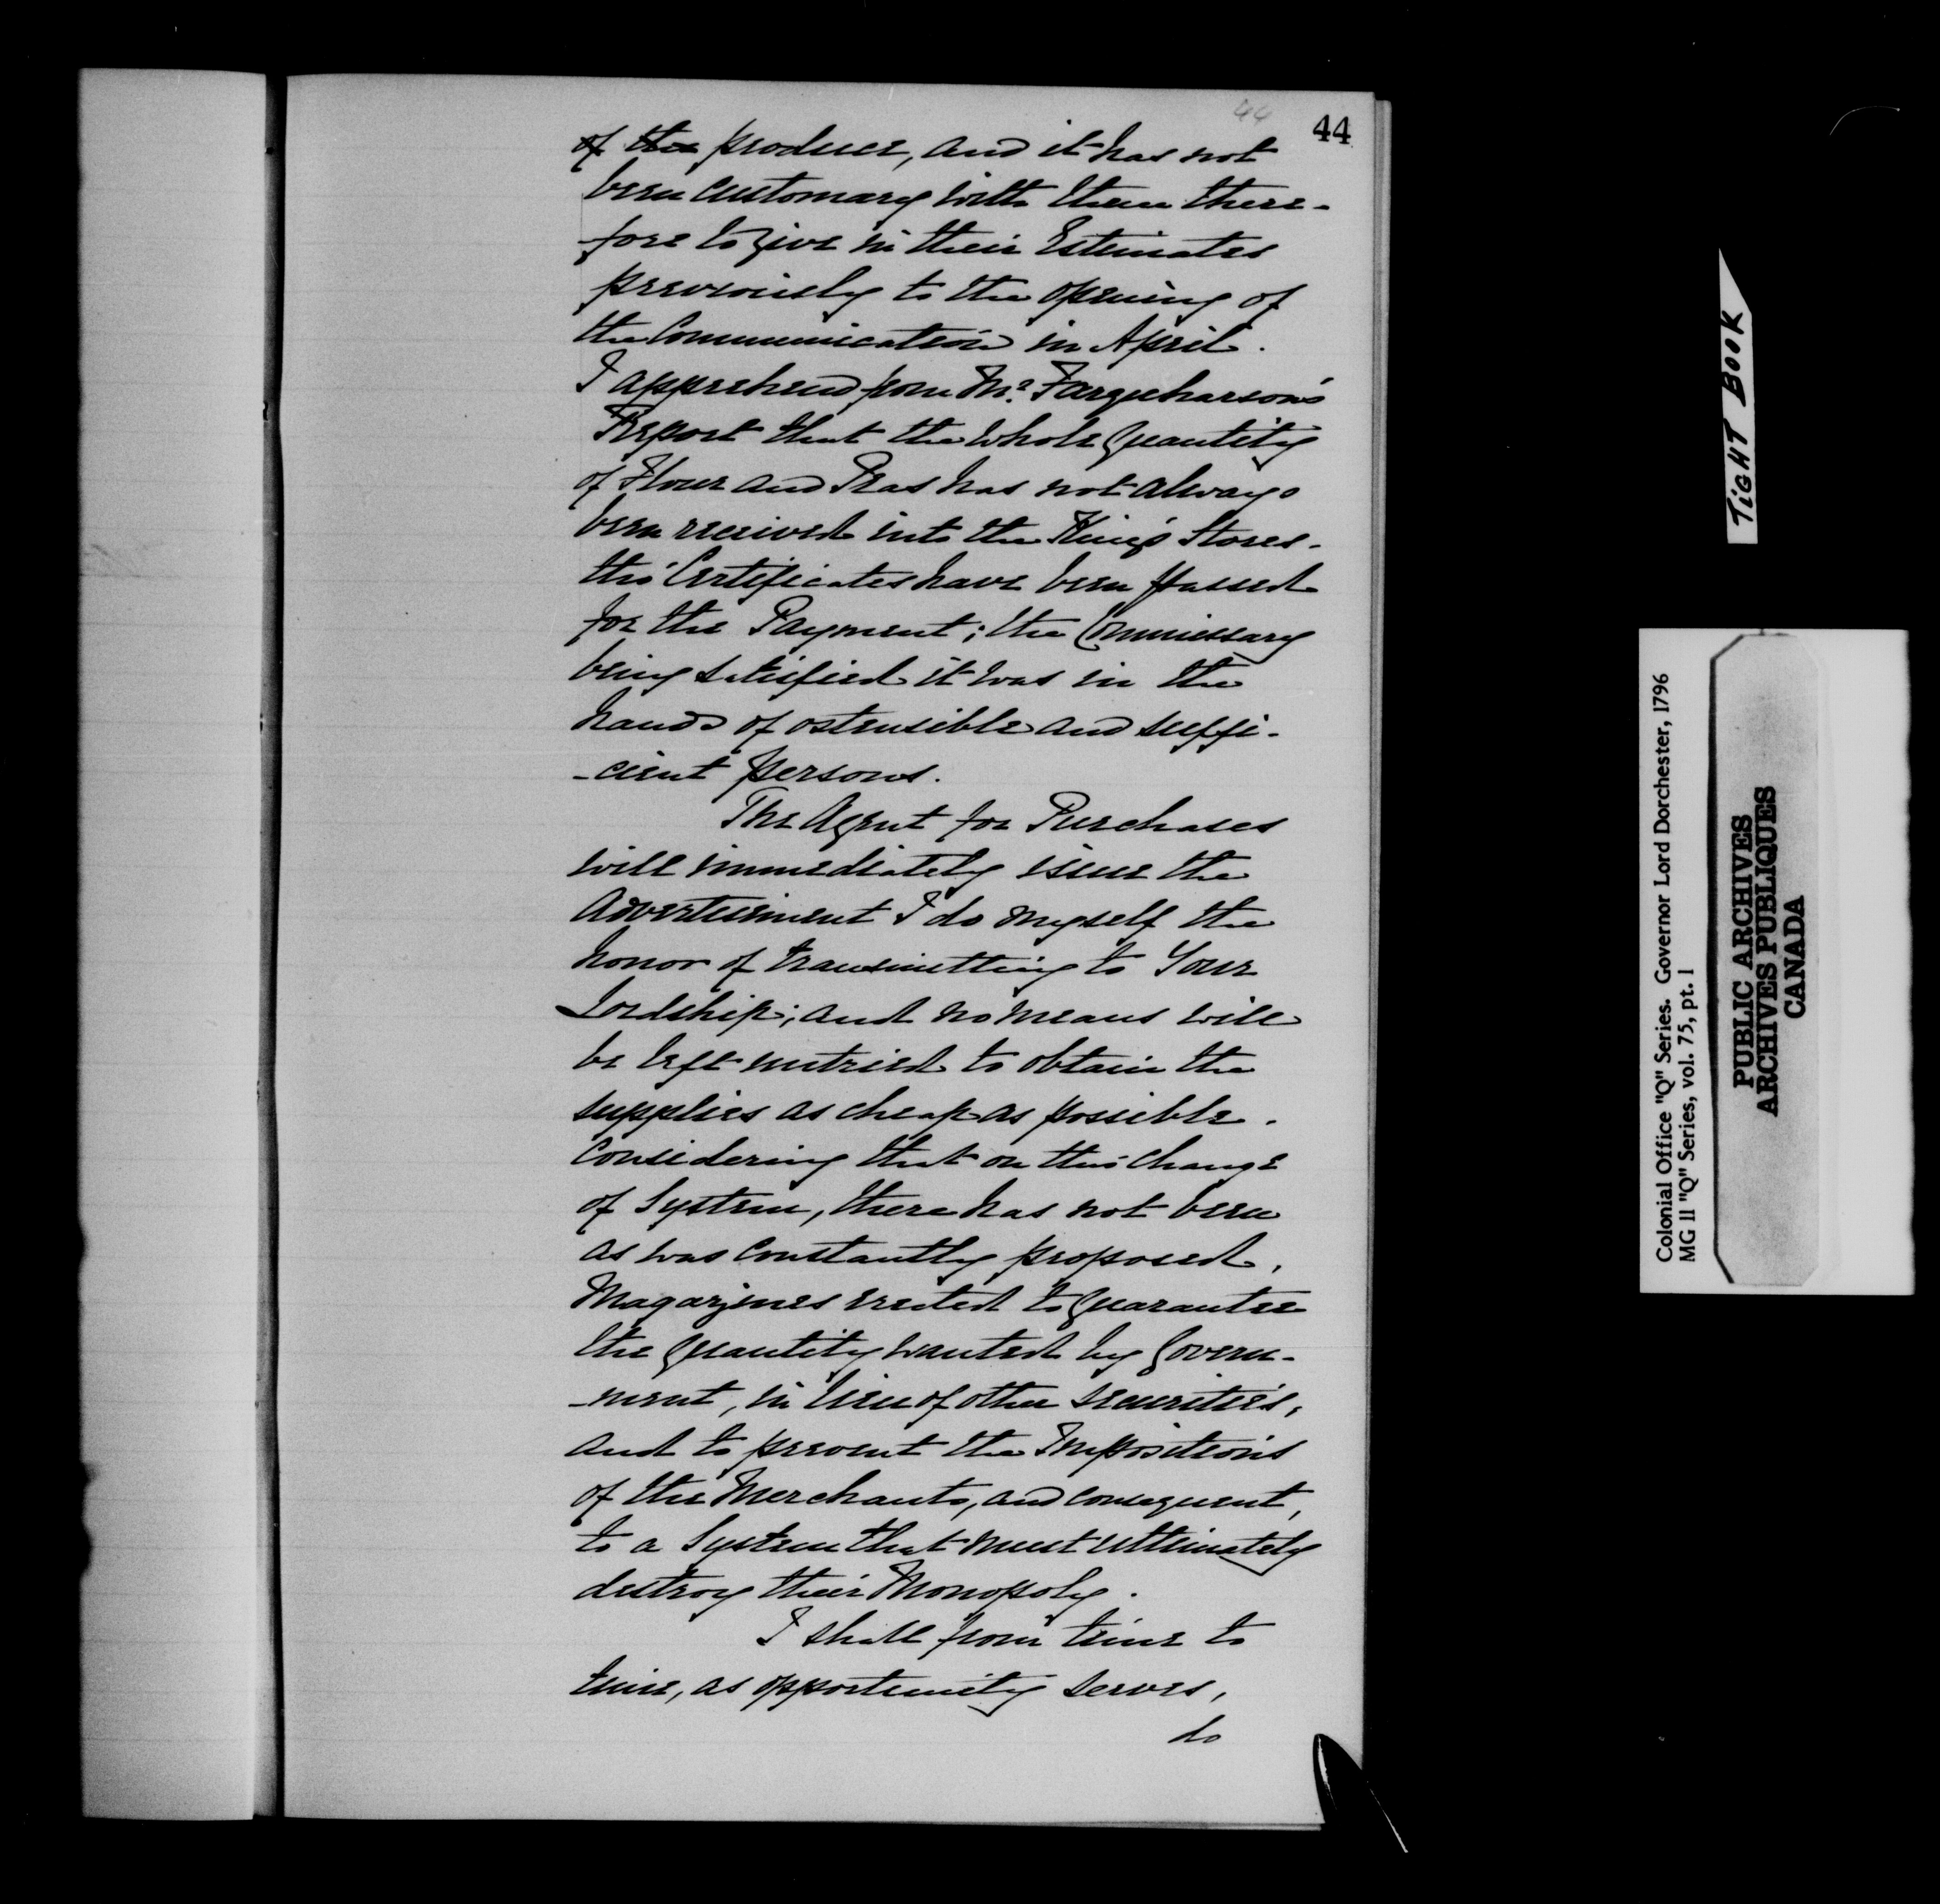 44
44
of the produce, and it has not
been customary with them there-
fore to give in their Estimates
previously to the opening of
the Communication in April.
I apprehend from Mr. Farquharson's
Report that the whole Quantity
of Flour and Peas has not always
been received into the King's Stores.
tho' Certificates have been passed
for the Payment; the Commissary
being satisfied it was in the
hands of ostensible and suffi-
-cient persons.
The Agent for Purchases
will immediately issue the
Advertisement I do myself the
honor of transmitting to Your
Lordship; and no means will
be left untried to obtain the
supplies as cheap as possible.
Considering that on this change
of System, there has not been
as was constantly proposed,
Magazines erected to guarantee
the quantity wanted by Govern-
-ment, in lieu of other securities,
and to prevent the Impositions
of the Merchants, and consequent,
to a System that must ultimately
destroy their Monopoly.
I shall from time to
time, as opportunity serves,
do
TIGHT BOOK
Colonial Office "Q" Series. Governor Lord Dorchester, 1796
MG 11 "Q" Series, vol. 75, pt. 1
PUBLIC ARCHIVES
ARCHIVES PUBLIQUES
CANADA